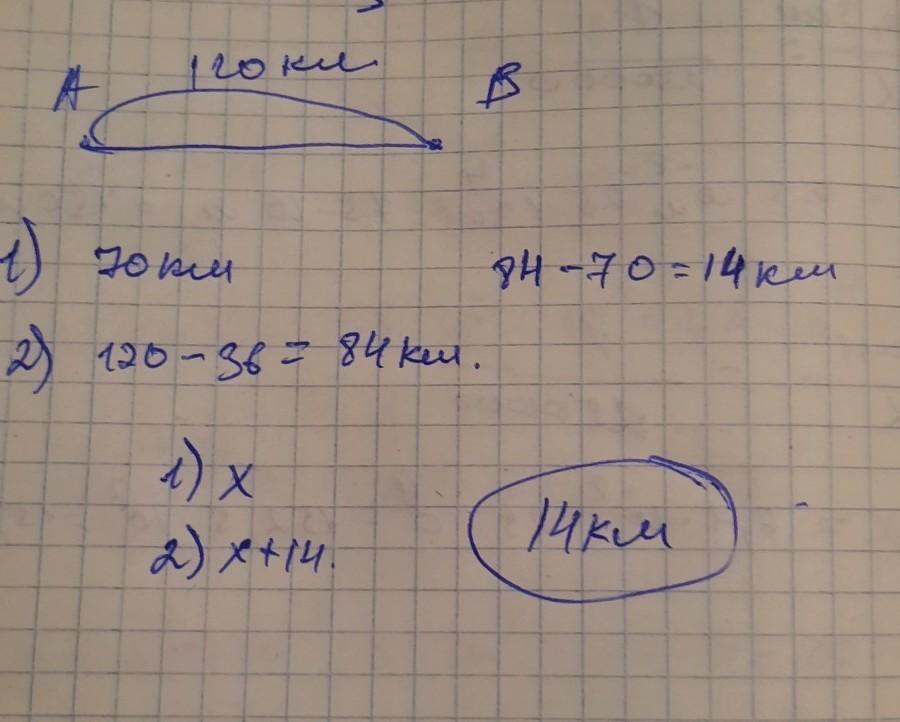 120 км
A B
1) 70 км 84 - 70 = 14 км
2) 120 - 36 = 84 км.
1) x
2) x + 14.
14 км